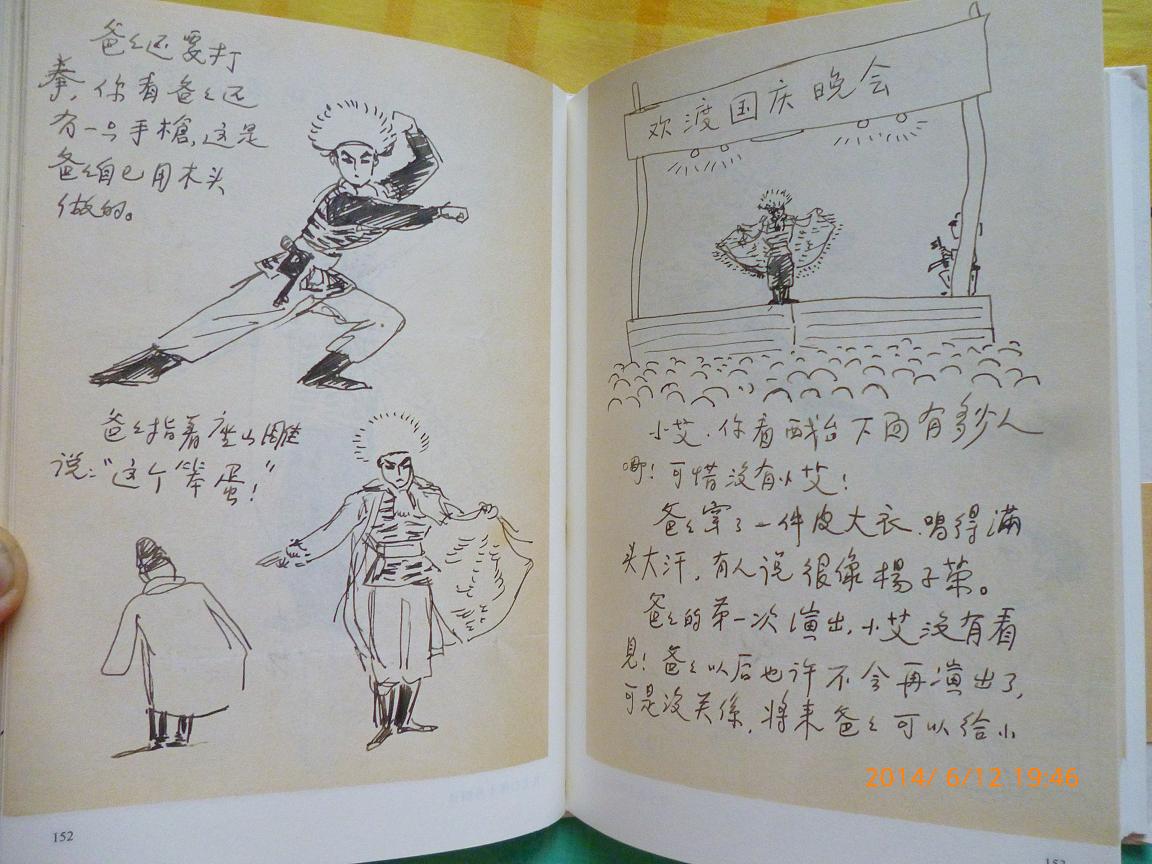 爸々还要打
拳，你看爸々还
有一只手槍，这是
爸々自己用木头
做的。
爸々指着座山雕
说："这个'笨蛋！"
152
欢渡国庆晚会
小艾，你看戏台下面有多少人
啊！可惜没有小艾！
爸々穿了一件皮大衣，唱得满
头大汗，有人说很像楊子荣。
爸々的第一次演出，小艾没有看
見！爸々以后也许不会再演出了，
可是没关係，将来爸々可以给小
2014/ 6/12 19:46